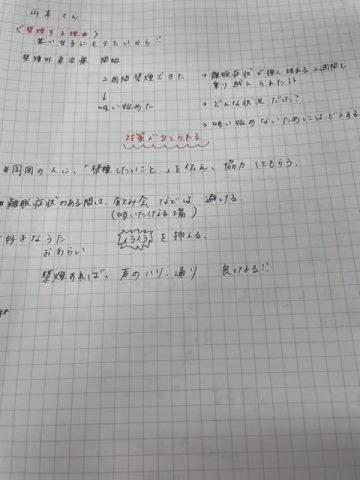 山本さん
〈禁煙する理由〉
若い女子にモテたいから!!
禁煙外来治療 開始
2週間禁煙できた → 離脱症状が強く現れる2週間を
乗り越えられた!!
↓
吸い始めた
→ どんな状況だった?
→ 吸い始めないためにはどうする
対策が立てられる
*周囲の人に、「禁煙したいこと」を伝え、協力してもらう。
*離脱症状のある間は、飲み会などは避ける。
(吸いたくなる場)
好きなうた
おわらい
イライラ を抑える。
禁煙すれば、声のハリ、通り 良くなる!!